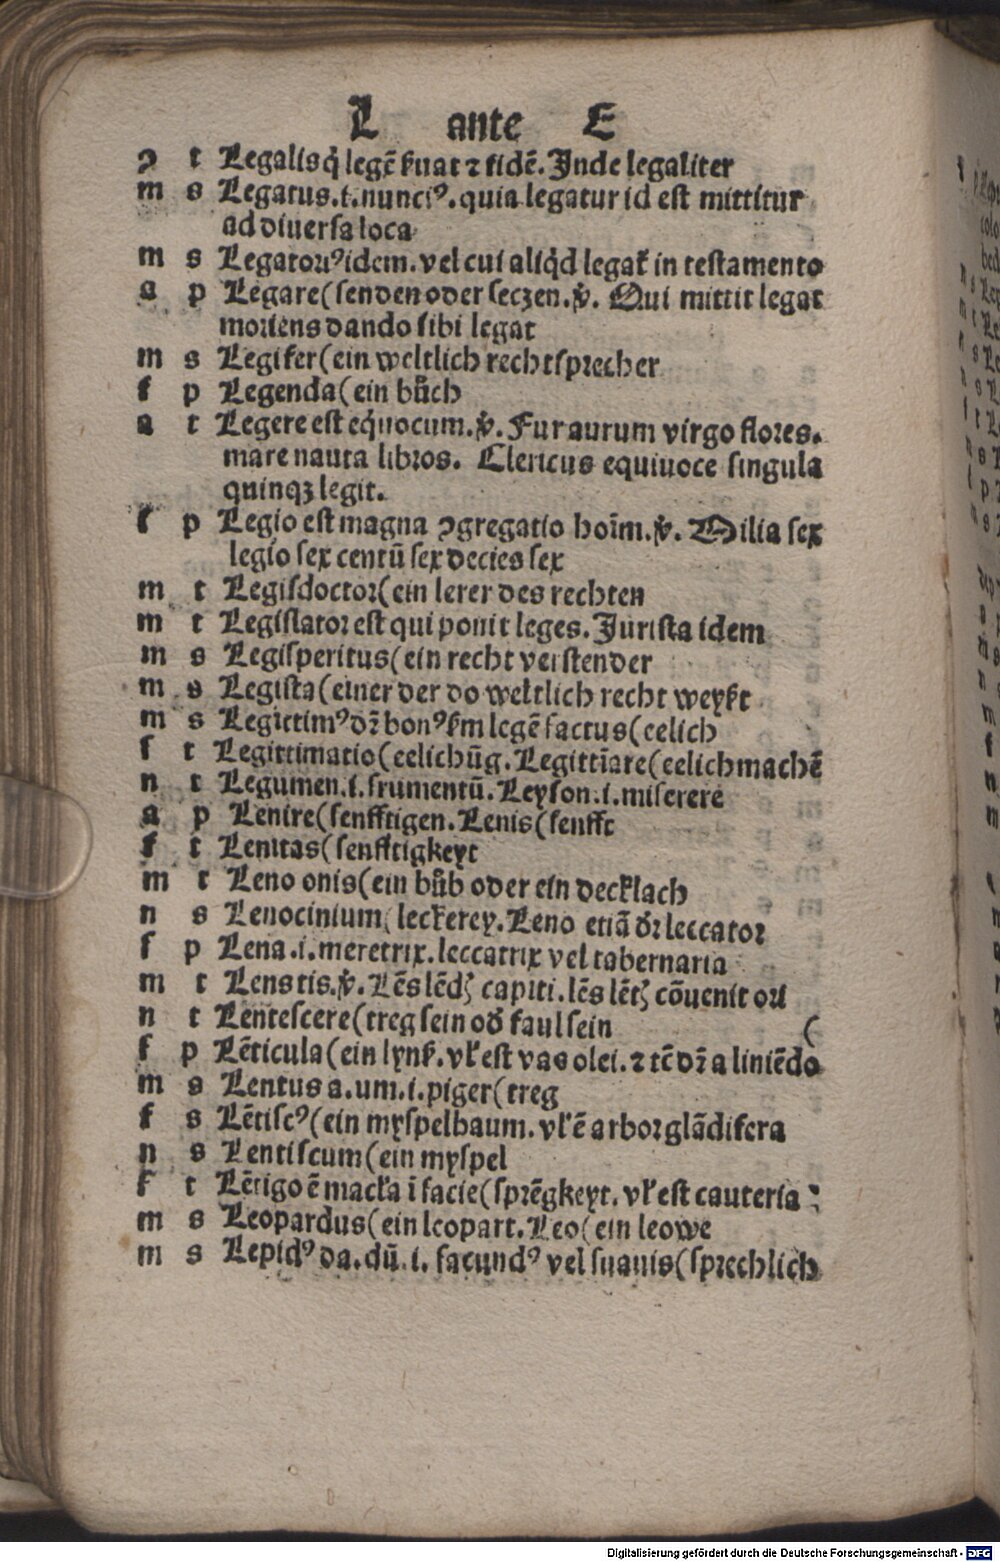 L ante E
ꝯ t Legalis q̇ legē ẜuat ⁊ fidē. Inde legaliter
m s Legatus .i. nunciꝰ. quia legatur id est mittitur
ad diuersa loca
m s Legatoriꝰ idem. vel cui aliq̇d legat̉ in testamento
a p Legare (senden oder seczen. v̉. Qui mittit legat
moriens dando sibi legat
m s Legifer (ein weltlich rechtsprecher
f p Legenda (ein bůch
a t Legere est equ̇ocum. v̉. Fur aurum virgo flores.
mare nauta libros. Clericus equiuoce singula
quinqꝫ legit.
f p Legio est magna ꝯgregatio hoīm. v̉. Milia sex
legio sex centū sex decies sex
m t Legisdoctor (ein lerer des rechten
m t Legislator est qui ponit leges. Jurista idem
m s Legisperitus (ein recht verstender
m s Legista (einer der do weltlich recht weyßt
m s Legittimꝰ dr̄ bonꝰ ẜm legē factus (eelich
f t Legittimatio (eelichūg. Legittīare (eelich machē
n t Legumen .i. frumentū. Leyson .i. miserere
a p Lenire (senfftigen. Lenis (senfft
f t Lenitas (senfftigkeyt
m t Leno onis (ein bůb oder ein decklach
n s Lenocinium (leckerey. Leno etiā dr̄ leccator
f p Lena .i. meretrix. leccatrix vel tabernaria
m t Lens tis. v̉. Lēs lēdꝭ capiti. lēs lētꝭ cōuenit ori
n t Lentescere (treg sein od̉ faul sein (
f p Lēticula (ein lynß. vl̉ est vas olei. ⁊ tē dr̄ a liniēdo
m s Lentus a. um .i. piger (treg
f s Lētiscꝰ (ein myspelbaum. vl̉ ē arbor glādifera
n s Lentiscum (ein myspel
f t Lētigo ē macl̉a ī facie (sprēgkeyt. vl̉ est cauteria
m s Leopardus (ein leopart. Leo (ein leowe
m s Lepidꝰ da. dū .i. facundꝰ vel suauis (sprechlich
Digitalisierung gefördert durch die Deutsche Forschungsgemeinschaft - DFG